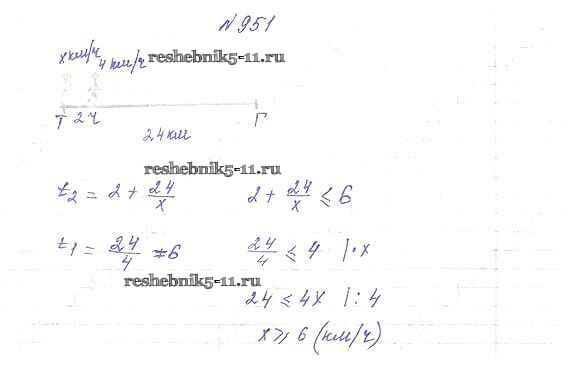 N 951
x км/ч 4 км/ч reshebnik5-11.ru
T 2 ч Г
24 км
reshebnik5-11.ru
t₂ = 2 + 24/x 2 + 24/x ⩽ 6
t₁ = 24/4 = 6 24/4 ⩽ 4 |·x
reshebnik5-11.ru
24 ⩽ 4x |: 4
x ⩾ 6 (км/ч)